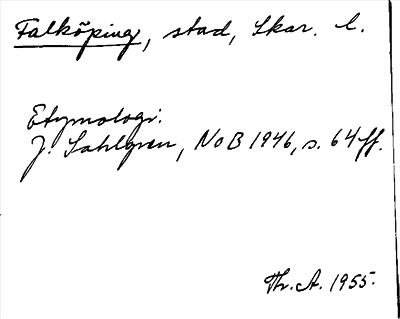 Falköping, stad, Skar. l.
Etymologi:
J. Sahlgren, NoB 1946, s. 64 ff.
Thr. A. 1955.